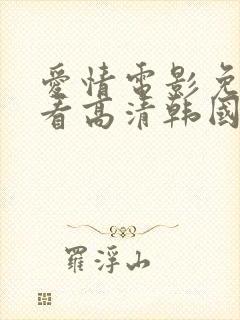 愛情電影免
看高清韓國
羅浮山